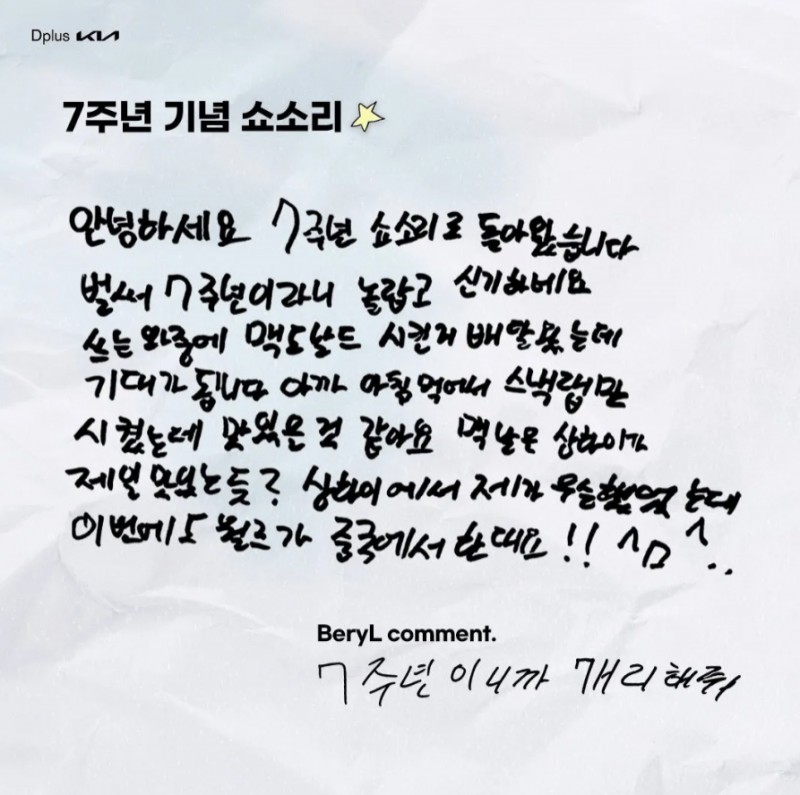 Dplus KIA
7주년 기념 쇼소리
안녕하세요 7주년 쇼소리로 돌아왔습니다
벌써 7주년이라니 놀랍고 신기하네요
쓰는 와중에 맥도날드 시킨거 배달왔는데
기대가 됩니다 아까 아침먹어서 스낵랩만
시켰는데 맛있은 것 같아요 맥날은 상하이가
제일 맛있는듯? 상하이에서 제가 우승했었는데
이번에도 월즈가 중국에서 한대요!! ^ㅁ^..
BeryL comment.
7주년이니까 개리해줘